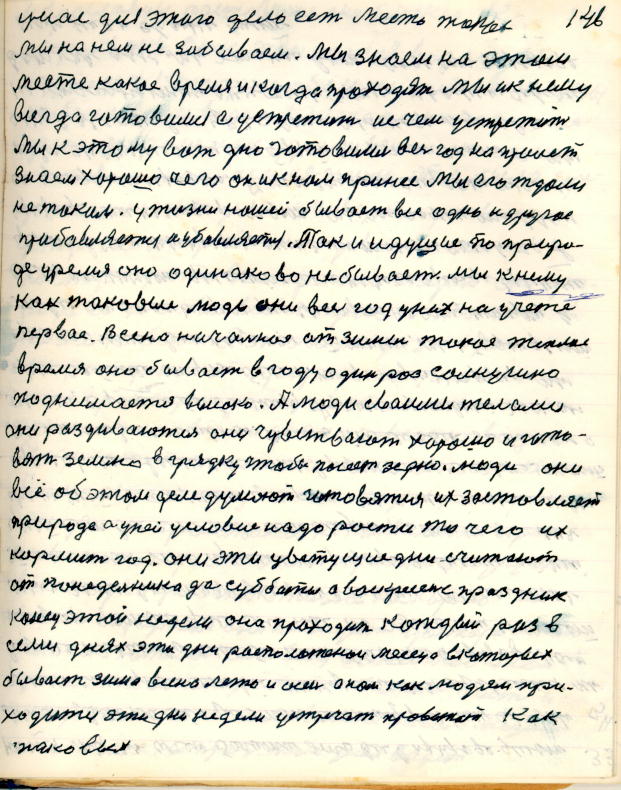 унас для этого дело есть место такое 146
мы на нем не забываем. мы знаем на этом
месте какое время и когда проходят мы и к нему
всегда готовились и устретит и чем устретить
мы к этому вот дню готовились весь год на
знаем хорошо чего он к нам принес мы его ждали
не таким. у жизни нашей бывает все одно и другое
прибавляется и убавляется. Так и идущие по приро-
де уремя оно одинаково не бывает. мы к нему
как таковые люди они весь год у них на учете
первое. Весна началное от зимы такое теплое
время оно бывает в году один раз солнушко
поднимается высоко. А люди своими телами
они раздиваются они чувствают хорошо и гото-
вят землю в грядку чтобы посеет зерно. люди они
всё об этом деле думают готовятся их заставляет
природа а у ней условие надо рости то чего их
кормит год. они эти цветущие дни считают
от понеделника да субботы а воскресене праздник
конец этой недели она проходит каждый раз в
семи днях эти дни расположеной месеца в которых
бывает зима весна лето и осен а нам как людям при-
ходится эти дни недели устречат как
таковых